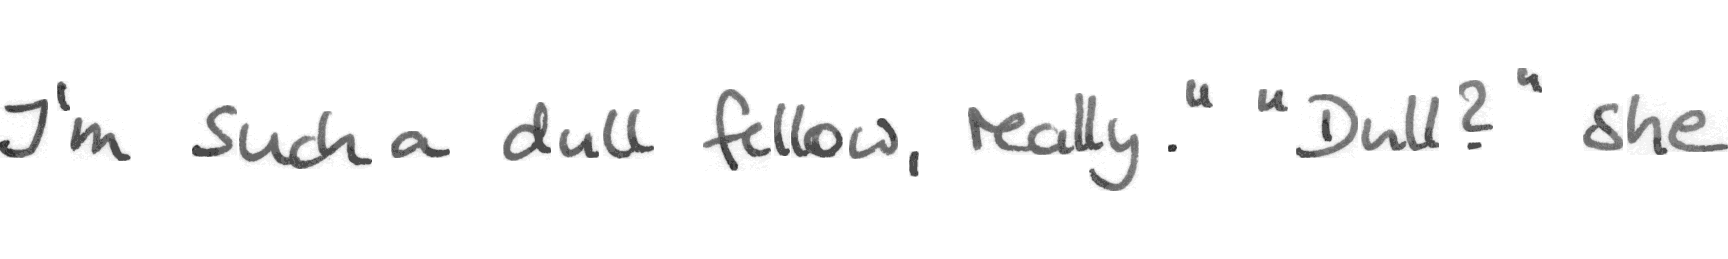 I'm such a dull fellow, really." "Dull?" she